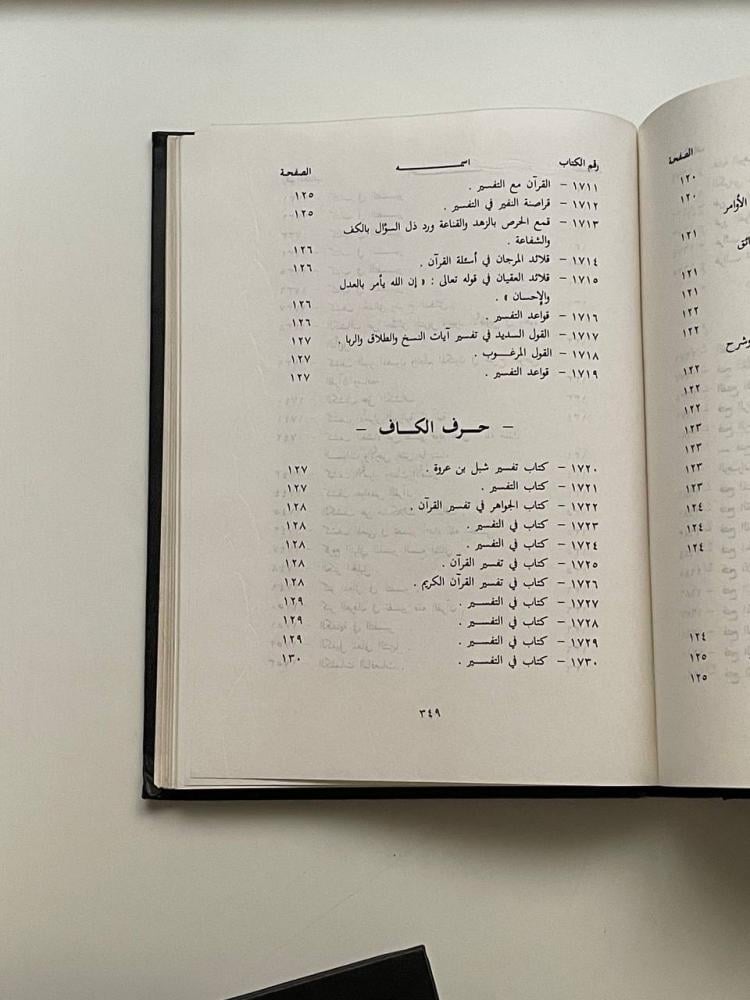 الصفحة
١٢٠
١٢٠
الأوامر
١٢١
ائق
١٢١
١٢١
١٢٢
١٢٢
وشرح
١٢٢
١٢٢
١٢٢
١٢٣
١٢٣
١٢٣
١٢٣
١٢٤
١٢٤
١٢٤
١٢٤
١٢٥
١٢٥
رقم الكتاب اسمـــه الصفحة
١٧١١ – القرآن مع التفسير . ١٢٥
١٧١٢ – قراصنة النفير في التفسير . ١٢٥
١٧١٣ – قمع الحرص بالزهد والقناعة ورد ذل السؤال بالكف
والشفاعة . ١٢٦
١٧١٤ – قلائد المرجان في أسئلة القرآن . ١٢٦
١٧١٥ – قلائد العقيان في قوله تعالى : « إن الله يأمر بالعدل
والإحسان » . ١٢٦
١٧١٦ – قواعد التفسير . ١٢٦
١٧١٧ – القول السديد في تفسير آيات النسخ والطلاق والربا . ١٢٧
١٧١٨ – القول المرغوب . ١٢٧
١٧١٩ – قواعد التفسير . ١٢٧
– حـرف الكـاف –
١٧٢٠ – كتاب تفسير شبل بن عروة . ١٢٧
١٧٢١ – كتاب التفسير . ١٢٧
١٧٢٢ – كتاب الجواهر في تفسير القرآن . ١٢٨
١٧٢٣ – كتاب في التفسير . ١٢٨
١٧٢٤ – كتاب في التفسير . ١٢٨
١٧٢٥ – كتاب في تفسير القرآن . ١٢٨
١٧٢٦ – كتاب في تفسير القرآن الكريم . ١٢٨
١٧٢٧ – كتاب في التفسير . ١٢٩
١٧٢٨ – كتاب في التفسير . ١٢٩
١٧٢٩ – كتاب في التفسير . ١٢٩
١٧٣٠ – كتاب في التفسير . ١٣٠
٣٤٩